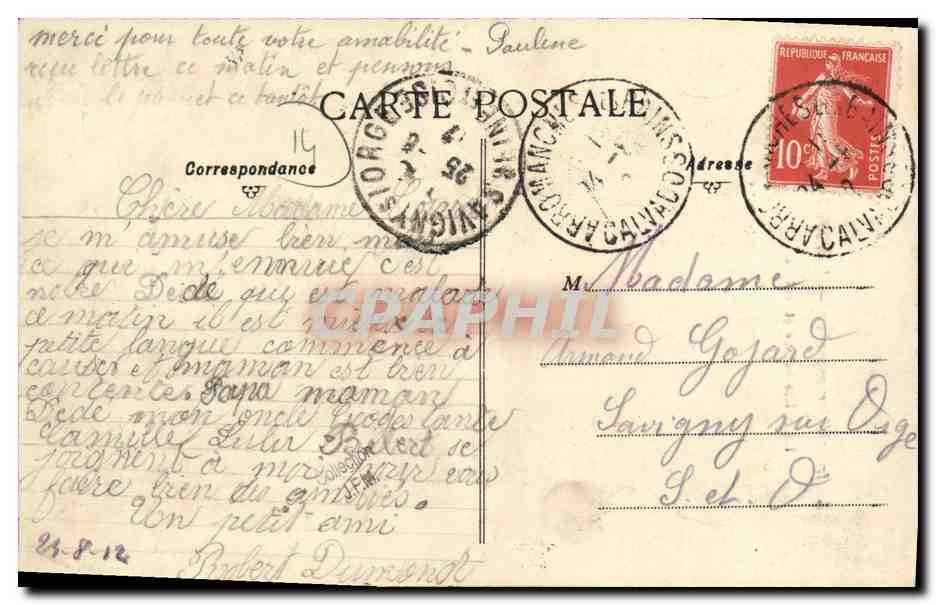 merci pour toute votre amabilité - Pauline
reçu lettre ce matin et
ce tantôt
CARTE POSTALE
14
Correspondance
Adresse
REPUBLIQUE FRANÇAISE
10 c.
POSTES
SAVIGNY S/ ORGE
25
CALVADOS
CALVADOS
Chère Madame
je m'amuse bien
ce qui m'ennuie c'est
notre Dédé qui est malade
ce matin il est mieux sa
petite langue commence à
causer et maman est bien
contente. Papa maman
Dédé mon oncle tante
Camille Lulu Bébert se
joignent à moi pour vous
faire bien des amitiés.
Un petit ami
Robert Dumondt
M. Madame
Armand Gojard
Savigny sur Orge
S. et O.
CPAPHIL
Collection
J.F.M.